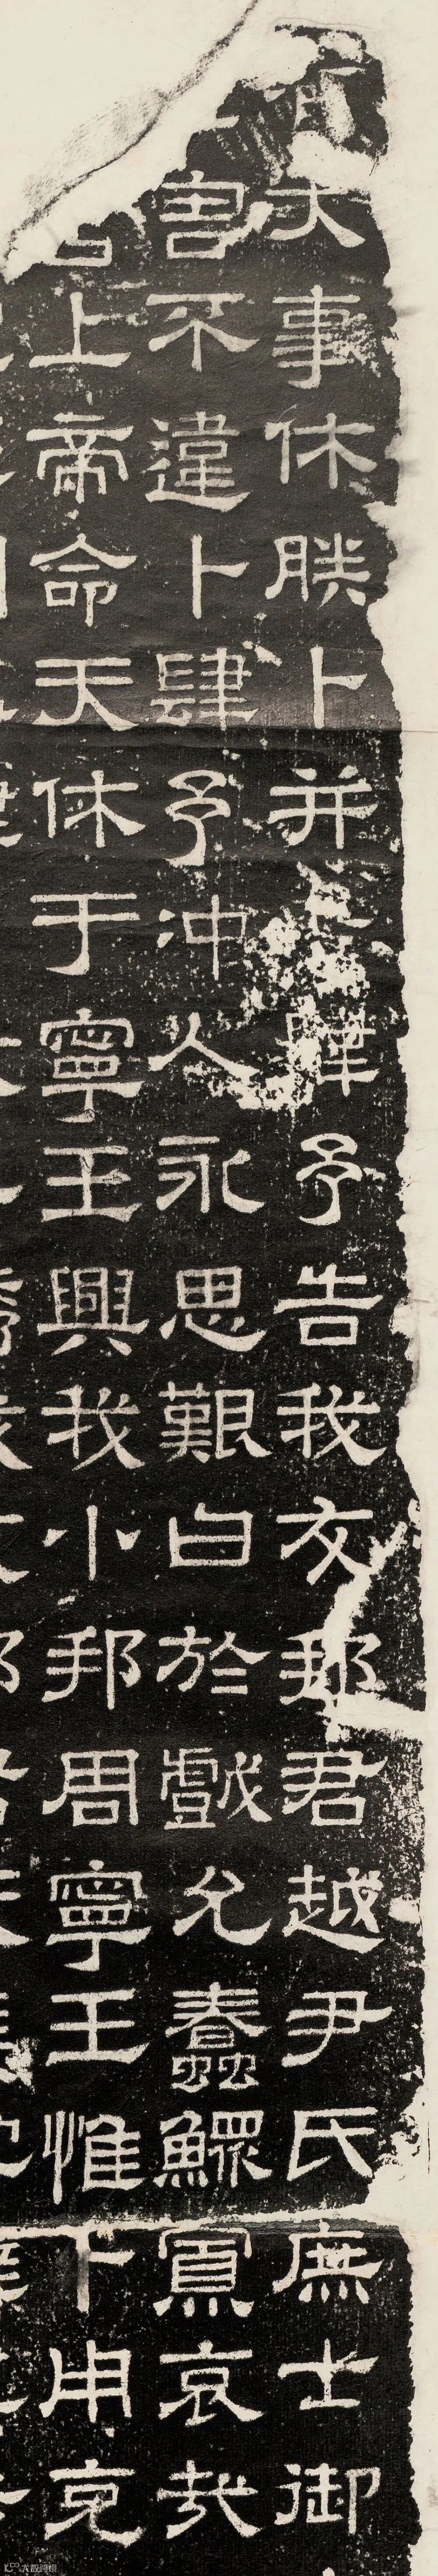 大事休朕卜并吉肆予告我友邦君越尹氏庶士御
害不違卜肆予沖人永思艱白於戲允蠢鰥寡哀哉
上帝命天休于寧王興我小邦周寧王惟卜用克